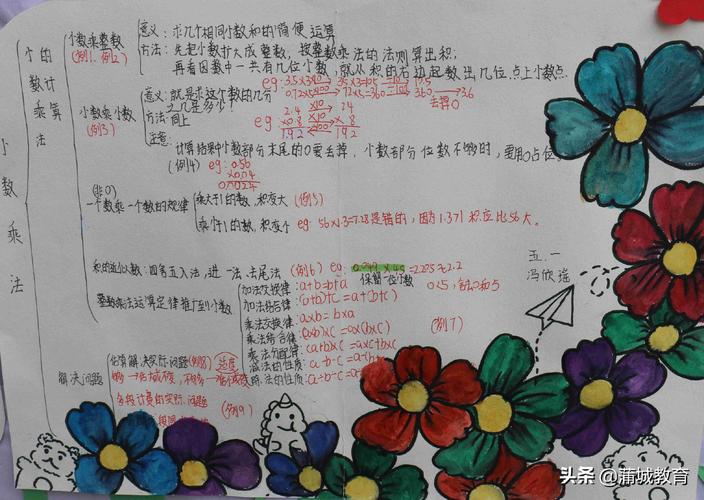 小数乘法
小数乘法的计算
小数乘整数
(例1、例2)
意义：求几个相同小数和的简便运算
方法：先把小数扩大成整数，按整数乘法的法则算出积；
再看因数中一共有几位小数，就从积的右边起数出几位，点上小数点.
小数乘小数
(例3)
意义：就是求这个数的几分之几是多少？
0.72×5
72×5=360
360
3.6
去掉0
方法：同上
eg
2.4 ×10 24
×0.8 ×10 × 8
1.92 192
注意：
计算结果中小数部分末尾的0要去掉，小数部分位数不够时，要用0占位
(例4) eg: 0.56
×0.04
0.0224
(非0)
一个数乘一个数的规律
乘大于1的数，积变大 (例5)
乘小于1的数，积变小 eg: 56×1.3=7.28是错的，因为1.3>1 积应比56大。
积的近似数：四舍五入法，进一法，去尾法 (例6) eg:
=2.205≈2.2
保留一位小数
整数乘法运算定律推广到小数
加法交换律：a+b=b+a
加法结合律：(a+b)+c=a+(b+c)
乘法交换律：a×b=b×a
乘法结合律：(a×b)×c=a×(b×c)
(例7)
乘法分配律：
减法的性质：a-b-c=a-(b
除法的性质：
解决问题
估算解决实际问题(例8)
分段计费的实际问题
(例9)
五.一
冯欣瑶
头条 @蒲城教育